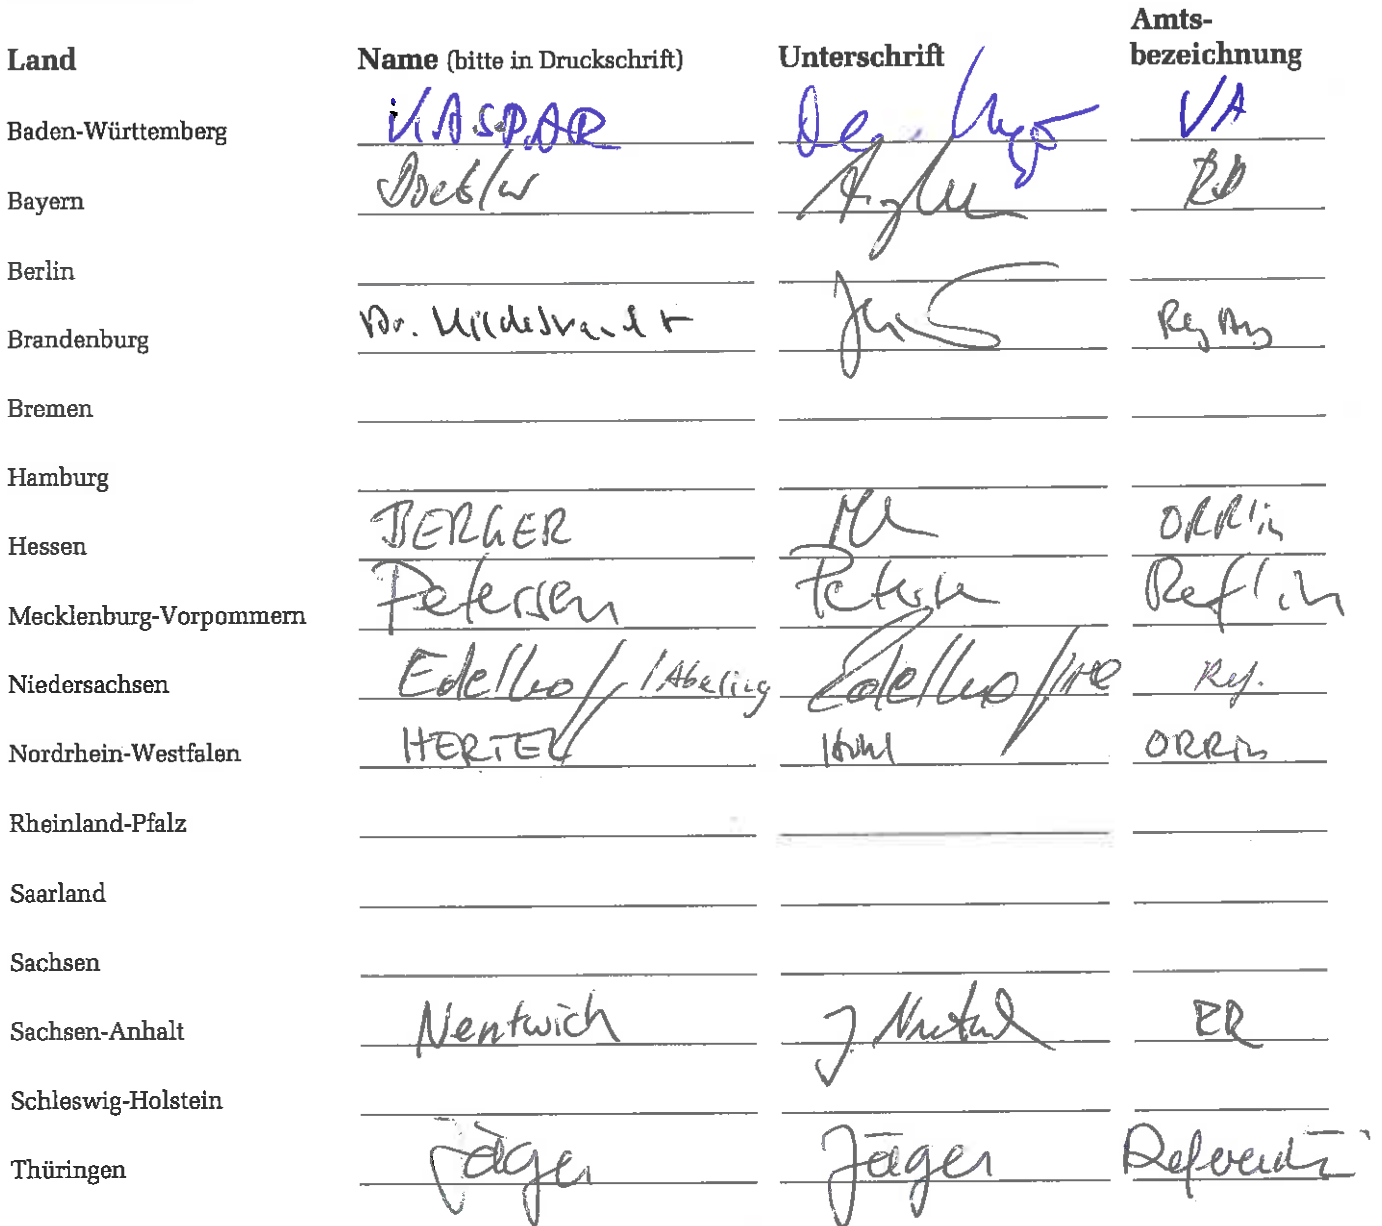 Land Name (bitte in Druckschrift) Unterschrift Amts-bezeichnung
Baden-Württemberg KASPAR VA
Bayern RD
Berlin
Brandenburg Dr. Hildebrandt
Bremen
Hamburg
Hessen BERGER ORR'in
Mecklenburg-Vorpommern Petersen Petersen Ref'in
Niedersachsen Edelhof / Abeling Edelhof Ref.
Nordrhein-Westfalen HERTEL ORRin
Rheinland-Pfalz
Saarland
Sachsen
Sachsen-Anhalt Nentwich RR
Schleswig-Holstein
Thüringen Jäger Jäger